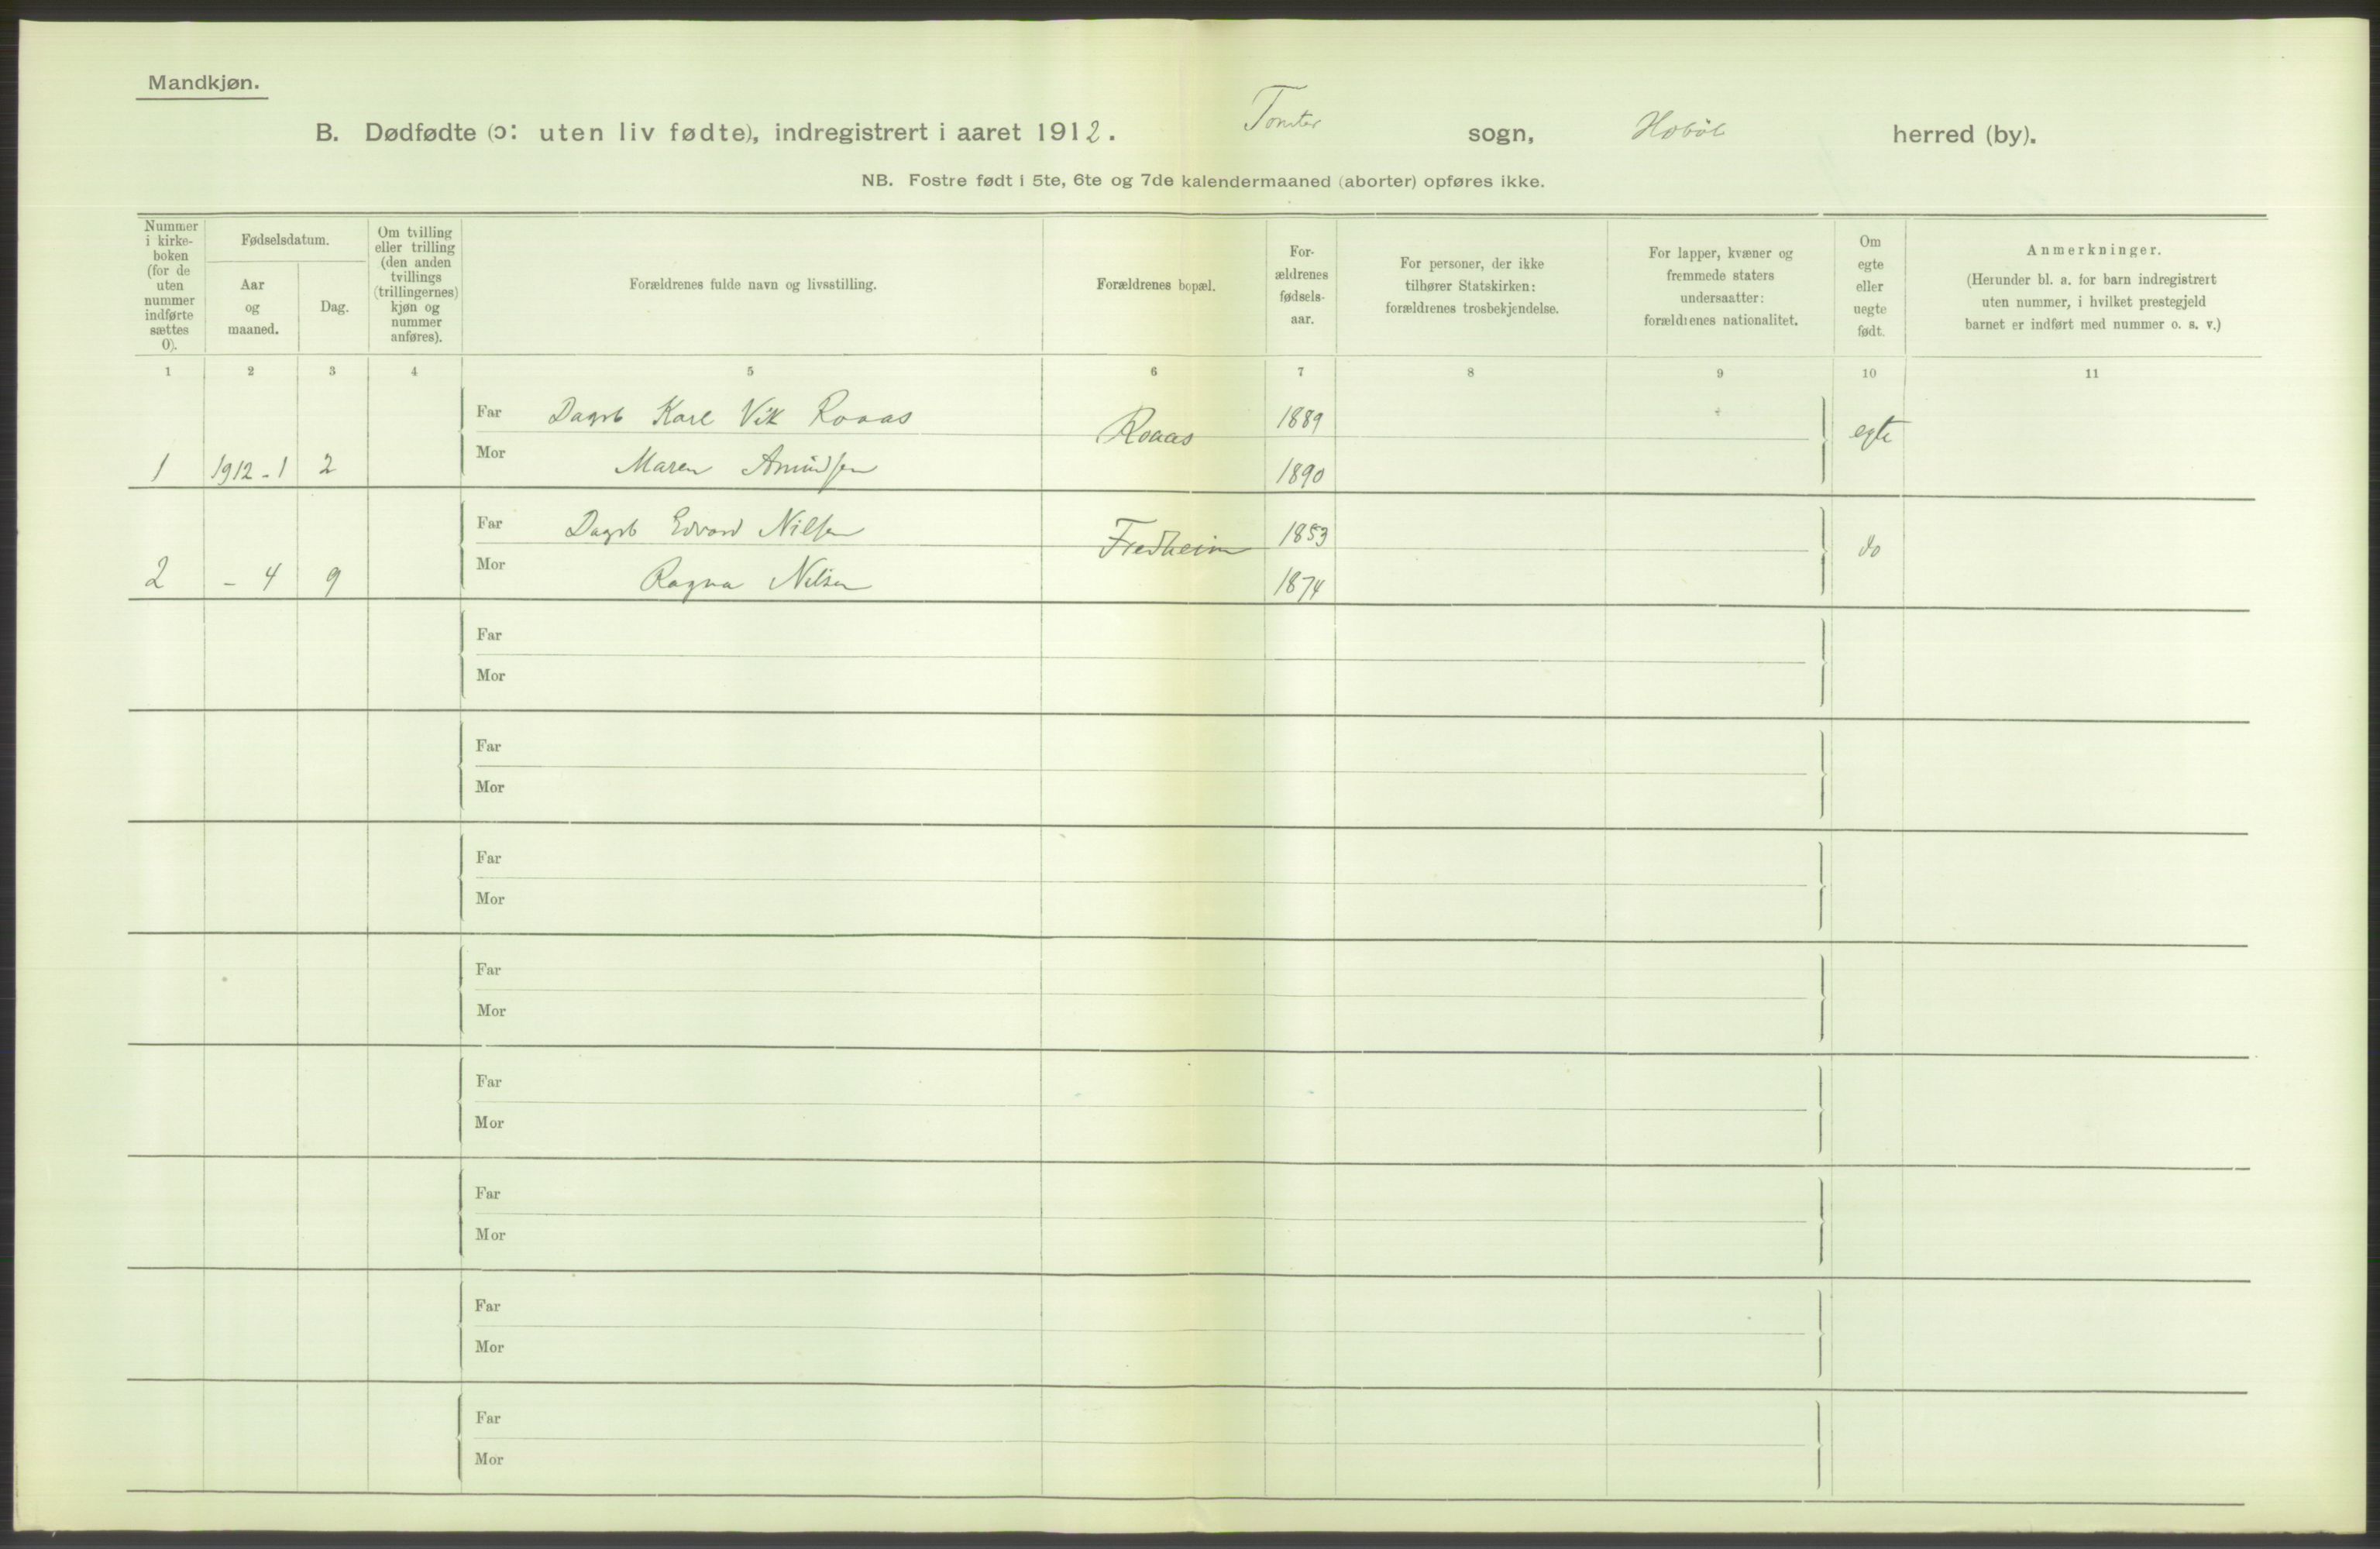 Mandkjøn.
B. Dødfødte (ɔ: uten liv fødte), indregistrert i aaret 1912. Tomter sogn, Hobøl herred (by).
NB. Fostre født i 5te, 6te og 7de kalendermaaned (aborter) opføres ikke.
Nummer
i kirke-
boken
(for de
uten
nummer
indførte
sættes
0).
Fødselsdatum.
Aar
og
maaned.
Dag.
Om tvilling
eller trilling
(den anden
tvillings
(trillingernes)
kjøn og
nummer
anføres).
Forældrenes fulde navn og livsstilling.
Forældrenes bopæl.
For-
ældrenes
fødsels-
aar.
For personer, der ikke
tilhører Statskirken:
forældrenes trosbekjendelse.
For lapper, kvæner og
fremmede staters
undersaatter:
forældrenes nationalitet.
Om
egte
eller
uegte
født.
Anmerkninger.
(Herunder bl. a. for barn indregistrert
uten nummer, i hvilket prestegjeld
barnet er indført med nummer o. s. v.)
1 2 3 4 5 6 7 8 9 10 11
Far Dagsb Karl Vik Roaas Roaas 1889 egte
1 1912-1 2 Mor Maren Amundsen 1890
Far Dagsb Edvard Nilsen Fredheim 1853 do
2 - 4 9 Mor Ragna Nilsen 1874
Far
Mor
Far
Mor
Far
Mor
Far
Mor
Far
Mor
Far
Mor
Far
Mor
Far
Mor